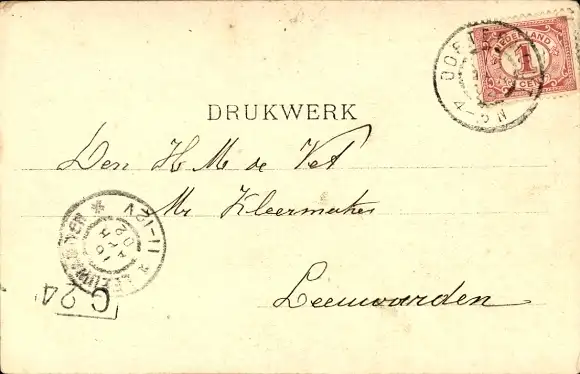 NEDERLAND
1
CENT
DRUKWERK
Den H M de Vet
Mr Kleermaker
Leeuwarden
LEEUWARDEN
11-12V
02
C 24